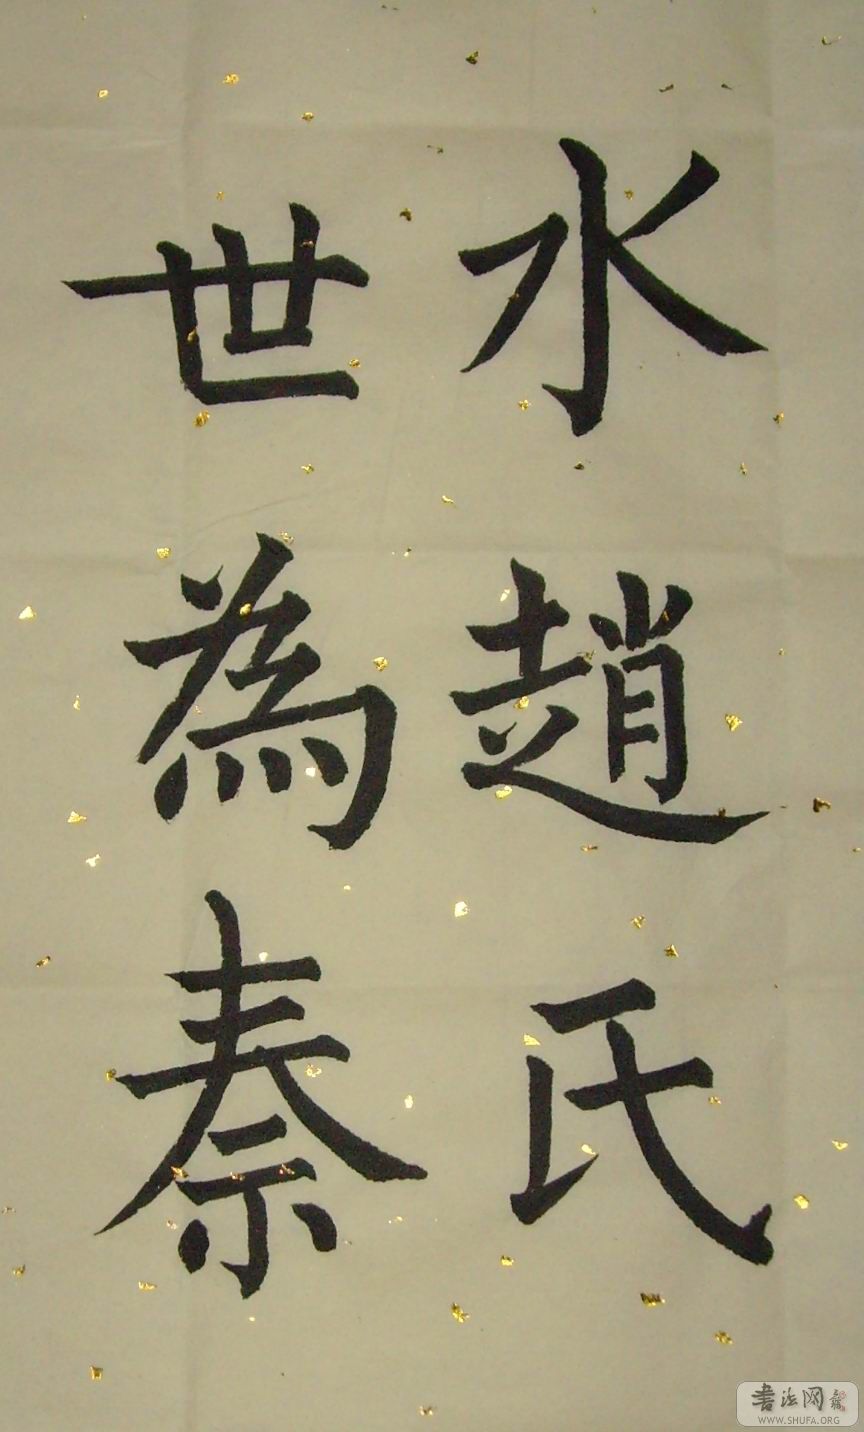 水趙氏
世為秦
書法网
WWW.SHUFA.ORG